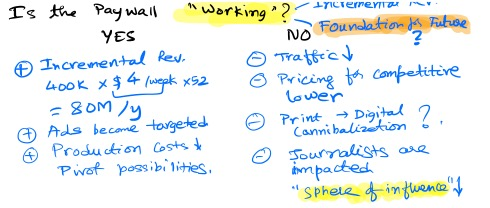 Is the Paywall "Working"?
Incremental Rev.
Foundation for Future
?
YES
NO
+ Incremental Rev.
400K x $4/week x52
= 80M/y
+ Ads become targeted
+ Production costs ↓
Pivot possibilities.
- Traffic ↓
- Pricing for competitive
lower
- Print → Digital
cannibalization ?
- Journalists are
impacted
"sphere of influence" ↓